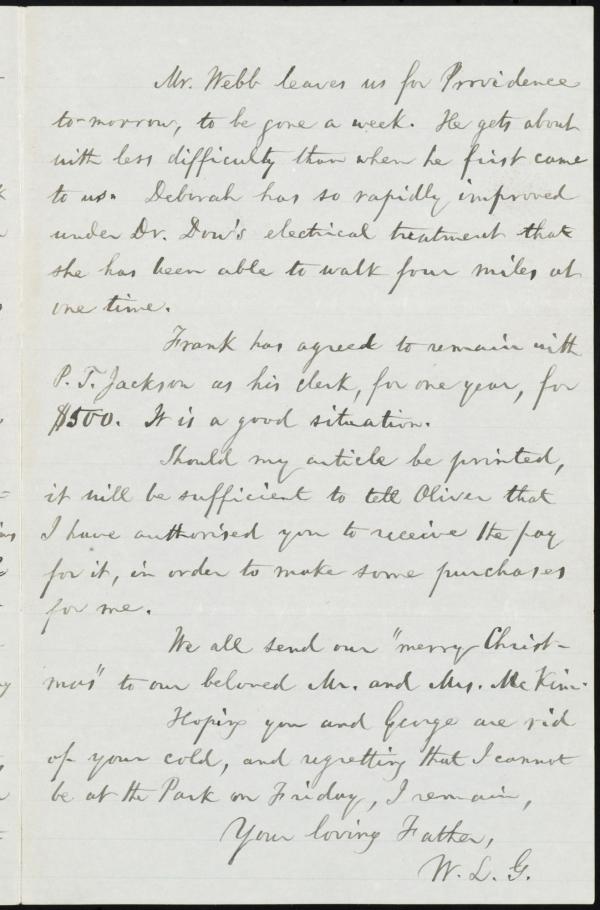 Mr. Webb leaves us for Providence
to-morrow, to be gone a week. He gets about
with less difficulty than when he first came
to us. Deborah has so rapidly improved
under Dr. Dow's electrical treatment that
she has been able to walk four miles at
one time.
Frank has agreed to remain with
P. T. Jackson as his clerk, for one year, for
$500. It is a good situation.
Should my article be printed,
it will be sufficient to tell Oliver that
I have authorised you to receive the pay
for it, in order to make some purchases
for me.
We all send our "merry Christ-
mas" to our beloved Mr. and Mrs. McKim.
Hoping you and George are rid
of your cold, and regretting that I cannot
be at the Park on Friday, I remain,
Your loving Father,
W. L. G.